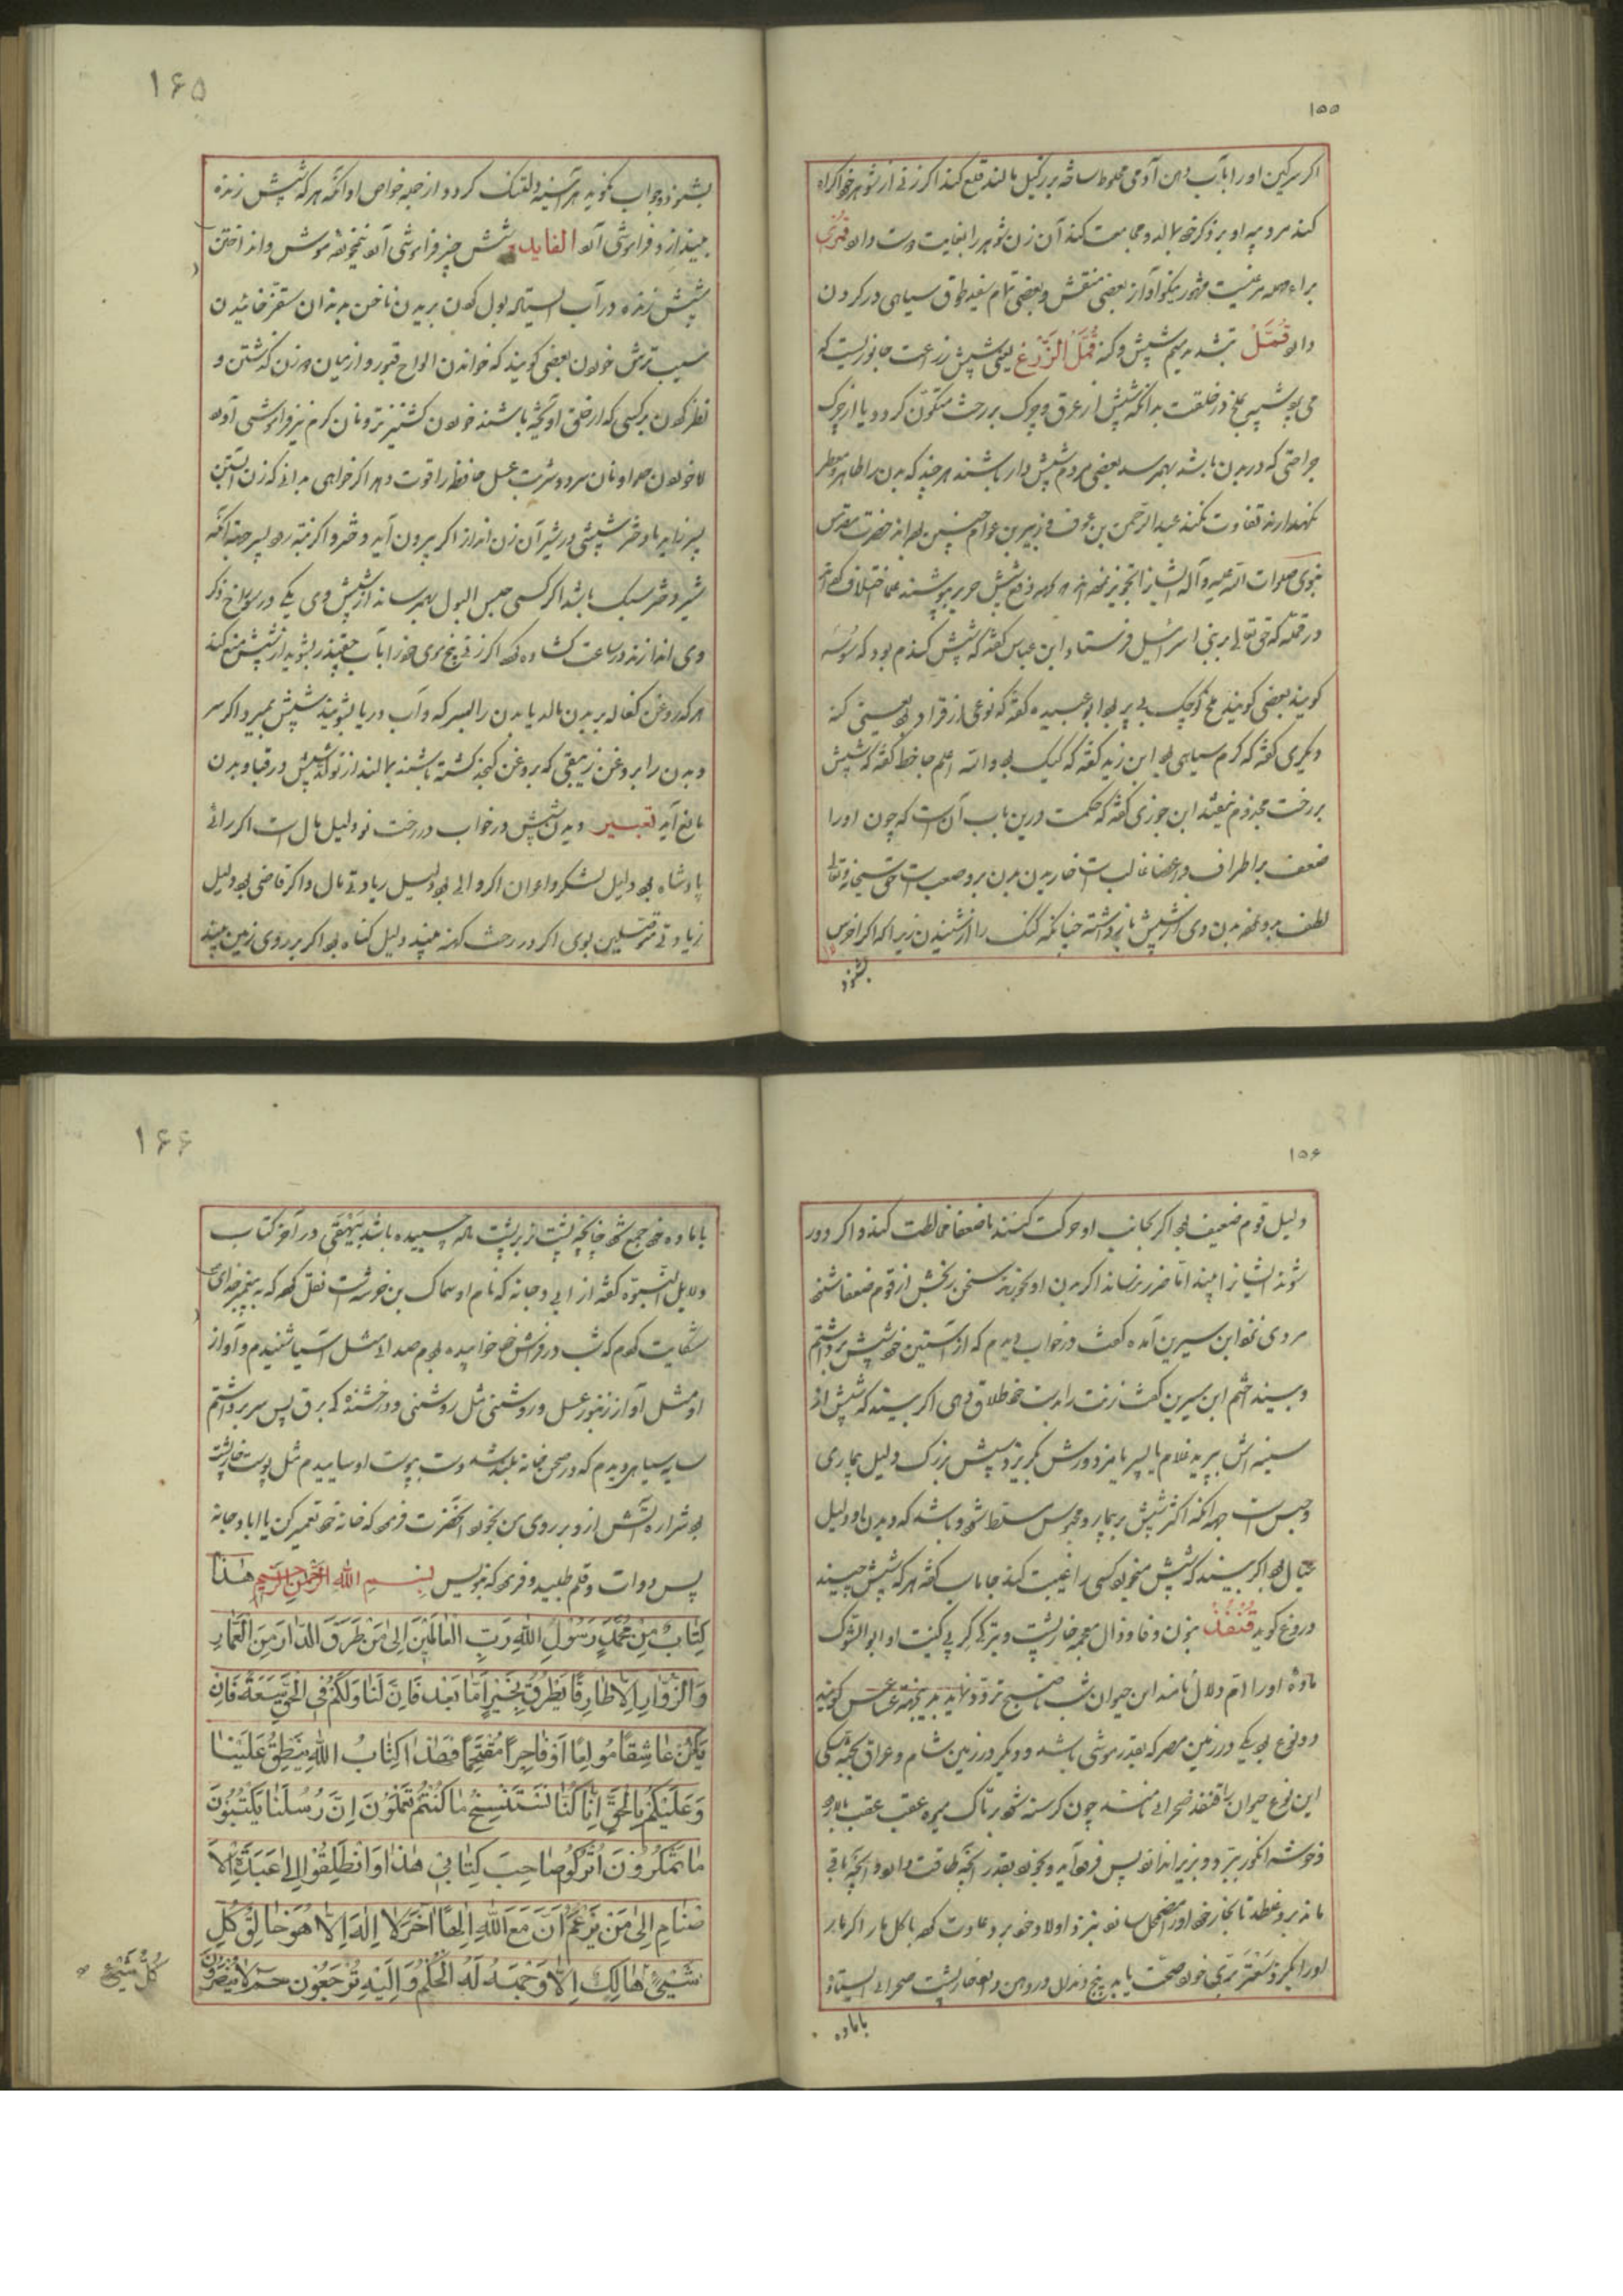 ۱۵۵
اکر سرکین او را با آب دهن آدمی مخلوط ساخته بر زکیل مالند قلع کند اکر زنی از شوهر خود اکراه
کند مرد پیه او بر ذکر خود بمالد و مجامعت کند آن زن شوهر را بغایت دوست دارد قمری
مرغیست مشهور نیکو آواز بعضی منقش و بعضی تمام سفید طوق سیاهی در کردن
دارد قُمَّلْ بتشدید میم شپش و کنه قُمَّلُ الزَّرْعِ یعنی شپش زراعت جانوریست که
می شبیه بملخ در خلقت بدانکه شپش از عرق و چرک بر رخت متکوّن کردد یا از چرک
جراحتی که در بدن باشد بهم رسد بعضی مردم شپش دار باشند هر چند که بدن را طاهر و معطر
نکهدارند تفاوت نکند عبد الرحمن بن عوف و زبیر بن عوام چنین بودند حضرت مقدس
نبوی صلوات الله علیه و آله ایشانرا تجویز نموده بود که بواسطه دفع شپش حریر بپوشند علما اختلاف کرده اند
در قمّله که حق تعالی بر بنی اسرائیل فرستاد ابن عباس کفته که شپش کندم بود که سوسه
کویند بعضی کویند ملخ کوچک بی پر بود ابو عبیده کفته که نوعی از قراد بود یعنی کنه
دیکری کفته که کرم سیاهی بود ابن زید کفته که کیک بود والله اعلم جاحظ کفته که شپش
بر رخت مجذوم نیفتد ابن جوزی کفته که حکمت درین باب آن است که چون او را
ضعف بر اطراف و اعضا غالب است خاریدن بدن برو صعب است حق سبحانه و تعالی
لطف برو نموده بدن وی از شپش باز داشته چنانکه کنک را از شنیدن زیرا که اکر اخرس
بشنود
۱۶۵
بشنود و جواب نکوید هر آینه دلتنک کردد و از جمله خواص او آنکه هر که شپش زنده
بیندازد فراموشی آرد الفایده شش چیز فراموشی آرد نیمخورده موش و انداختن
شپش زنده در آب ایستاده بول کردن بریدن ناخن بدندان سقز خائیدن
سیب ترش خوردن بعضی کویند که خواندن الواح قبور و از میان دو زن کذشتن و
نظر کردن بر کسی که از حلق آویخته باشند خوردن کشنیز تر و نان کرم نیز فراموشی آورد
اما خوردن حلوا و نان سرد و شربت عسل حافظه را قوت دهد اکر خواهی بدانی که زن آبستن
پسر زاید یا دختر شپشی در شیر آن زن انداز اکر بیرون آید دختر و اکر نتواند پسر جهت آنکه
شیر دختر سبک باشد اکر کسی حبس البول بهم رساند از شپش وی یکی در سوراخ ذکر
وی اندازند در ساعت کشاده کردد اکر زنی بیخ موی خود را با آب چغندر بشوید از شپش منع کند
هر که روغن بر بدن مالد یا بدن را بسرکه و آب دریا بشویند شپش بمیرد و اکر سر
و بدن را بروغن زیبقی که بروغن کنجد کشته باشند بمالند از تولد شپش در قبا و بدن
مانع آید تعبیر دیدن شپش در خواب در رخت نو دلیل مال است اکر رائی
پادشاه بود دلیل لشکر و اعوان اکر والی بود دلیل زیادتی مال و اکر قاضی بود دلیل
زیادتی متوسلین بوی اکر در رخت کهنه بیند دلیل کناه بود اکر بر روی زمین بیند
۱۵۶
دلیل قوم ضعیف بود اکر بجانب او حرکت کنند با ضعفا مخالطت کند و اکر دور
شوند ایشانرا بیند امّا ضرر نرساند اکر بدن او بخورند سخن ربخش از قوم ضعفا شنود
مردی نزد ابن سیرین آمده کفت در خواب دیدم که از آستین خود شپش برداشتم
و بینداختم ابن سیرین کفت زنت را بدست خود طلاق دهی اکر بیند که شپش از
سینه اش بپرید غلام یا پسر یا مزدورش بکریزد شپش بزرک دلیل بیماری
و حبس است جهت آنکه اکثر شپش بر بیمار و محبوس مسلط شود و باشد که دیدن او دلیل
عیال بود اکر بیند که شپش میخورد کسی را غیبت کند جاماسب کفته هر که شپش چیند
دروغ کوید قُنْفُذْ بنون و فا و ذال معجمه خارپشت و بترکی کرپی کنیت او ابو الشوک
ماده او را امّ دلدل نامند این حیوان شب تا صبح تردد نماید بدین جهت عساعس کویند
دو نوع بود یکی در زمین مصر که بقدر موشی باشد و دیکر در زمین شام و عراق بجثه سکی
این نوع حیوان را قنفذ صحرائی نامند چون کرسنه شود بر تاک میوه عقب عقب بالا رود
و خوشه انکور ببرد و بزیر اندازد پس فرود آید و بخورد بقدر آنچه طاقت دارد و آنچه باقی
ماند برو غلطد تا بخار خود او را مضمحل سازد نزد اولاد خود برد عادت کرد باکل مار اکر مار
او را بکزد سعتر برّی خورد صحّت یابد پنج دندان در دهن دارد خارپشت صحرائی ایستاده
با ماده
۱۶۶
با ماده خود جمع شود چنانچه پشت نر بر پشت ماده چسبیده باشد بیهقی در آخر کتاب
دلایل النبوّة کفته از ابی دجانه که نام او سماک بن خرشه است نقل کرد که به پیغمبر خدای
شکایت کردم که شب در فراش خود خوابیده بودم صدای مثل آسیا شنیدم و آواز
او مثل آواز زنبور عسل و روشنی مثل روشنی و درخشنده که برق پس سر برداشتم
سایه سیاهی دیدم که در صحن خانه بلند شد دست بپوست او سائیدم مثل پوست خارپشت
بود شراره آتش ازو بر روی من بخورد آنحضرت فرمود که خانه خود تعمیر کن یا ابا دجانه
پس دوات و قلم طلبید و فرمود که بنویس بِسْمِ اللهِ الرَّحْمٰنِ الرَّحِیمِ هٰذَا
کِتَابٌ مِنْ مُحَمَّدٍ رَسُولِ اللهِ رَبِّ الْعَالَمِینَ اِلیٰ مَنْ طَرَقَ الدَّارَ مِنَ الْعُمَّارِ
وَالزُّوَّارِ اِلَّا طَارِقًا یَطْرُقُ بِخَیْرٍ اَمَّا بَعْدُ فَاِنَّ لَنَا وَلَکُمْ فِی الْحَقِّ سَعَةً فَاِنْ
یَکُنْ عَاشِقًا مُولِعًا اَوْ فَاجِرًا مُقْتَحِمًا فَهٰذَا کِتَابُ اللهِ یَنْطِقُ عَلَیْنَا
وَعَلَیْکُمْ بِالْحَقِّ اِنَّا کُنَّا نَسْتَنْسِخُ مَا کُنْتُمْ تَعْمَلُونَ اِنَّ رُسُلَنَا یَکْتُبُونَ
مَا تَمْکُرُونَ اُتْرُکُوا صَاحِبَ کِتَابِی هٰذَا وَانْطَلِقُوا اِلیٰ عَبَدَةِ الْاَ
صْنَامِ اِلیٰ مَنْ یَزْعَمُ اَنَّ مَعَ اللهِ اِلٰهًا آخَرَ لَا اِلٰهَ اِلَّا هُوَ خَالِقُ کُلِّ
شَیْءٍ هَالِکٌ اِلَّا وَجْهَهُ لَهُ الْحُکْمُ وَاِلَیْهِ تُرْجَعُونَ حم لَا یُنْصَرُونَ
کُلُّ شَیْءٍ